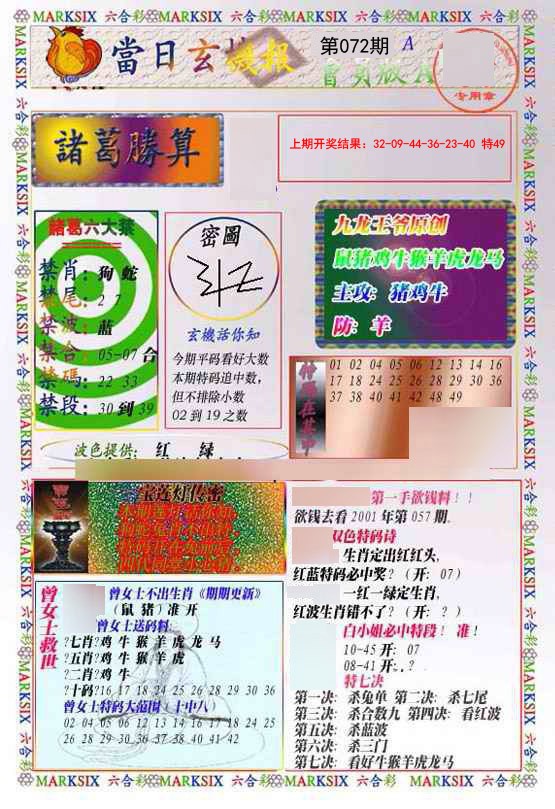 MARKSIX 六合彩 MARKSIX 六合彩 MARKSIX 六合彩 MARKSIX 六合彩
當日玄機报
第072期
A
會員版A
专用章
諸葛勝算
上期开奖结果：32-09-44-36-23-40 特49
諸葛六大禁
禁肖：狗 蛇
禁尾：2 7
禁波：蓝
禁合：05-07 合
禁碼：22 33
禁段：30到39
密圖
玄機話你知
今期平码看好大数
本期特码追中数，
但不排除小数
02 到 19 之数
九龙王爷原创
鼠猪鸡牛猴羊虎龙马
主攻：猪鸡牛
防：羊
01 02 04 05 06 12 13 14 16
17 18 24 25 26 28 29 30 36
37 38 40 41 42 48 49
波色提供： 红 绿
宝莲灯传密
曾女士救世
曾女士不出生肖《期期更新》
（鼠 猪）准 开
曾女士送码料：
?七肖?鸡 牛 猴 羊 虎 龙 马
?五肖?鸡 牛 猴 羊 虎
?二肖?鸡 牛
?十码?16 17 18 24 25 26 28 29 30 36
曾女士特码大范围（十中八）
02 04 05 06 12 13 14 16 17 18 24 25
26 28 29 30 36 37 38 40 41 42
第一手欲钱料！！
欲钱去看 2001 年第 057 期.
双色特码诗
生肖定出红红头,
红蓝特码必中奖？（开：07）
一红一绿定生肖,
红波生肖错不了？（开：？）
白小姐必中特段！ 准！
10-45 开：07
08-41 开:.?
特七决
第一决：杀兔单 第二决：杀七尾
第三决：杀合数九 第四决：看红波
第五决：杀蓝波
第六决：杀三门
第七决：看好牛猴羊虎龙马
MARKSIX 六合彩 MARKSIX 六合彩 MARKSIX 六合彩 MARKSIX 六合彩